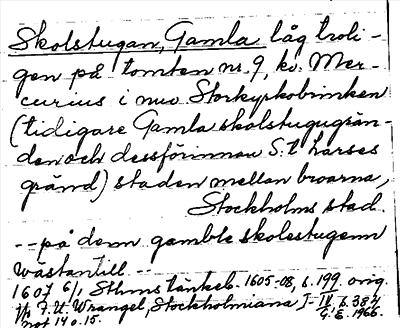 Skolstugan, Gamla låg troli-
gen på tomten nr. 9, kv. Mer-
curius i nuv Storkyrkobrinken
(tidigare Gamla skolstugugrän-
den och dessförinnan S:t Larses
gränd) staden mellan broarna,
Stockholms stad.
-- på denn gamble skolestugenn
wästantill --
1607 6/1 Sthms tänkeb. 1605-08, s. 199. orig.
F. U. Wrangel, Stockholmiana I-IV s. 384
not 14 o. 15. G. E. 1966.